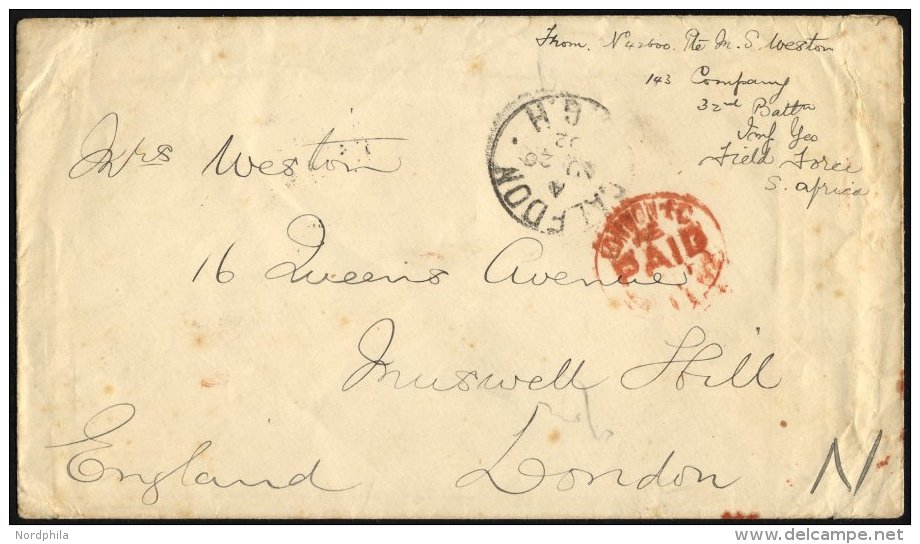 From. N 42600. Pte M. S. Weston
143 Company
32nd Battn
Imp Yeo
Field Force
S. Africa
CALEDON
G.H.
LONDON E.C.
PAID
Mrs Weston
16 Queens Avenue
Muswell Hill
London
England
N
Nordphila
www.delcampe.net